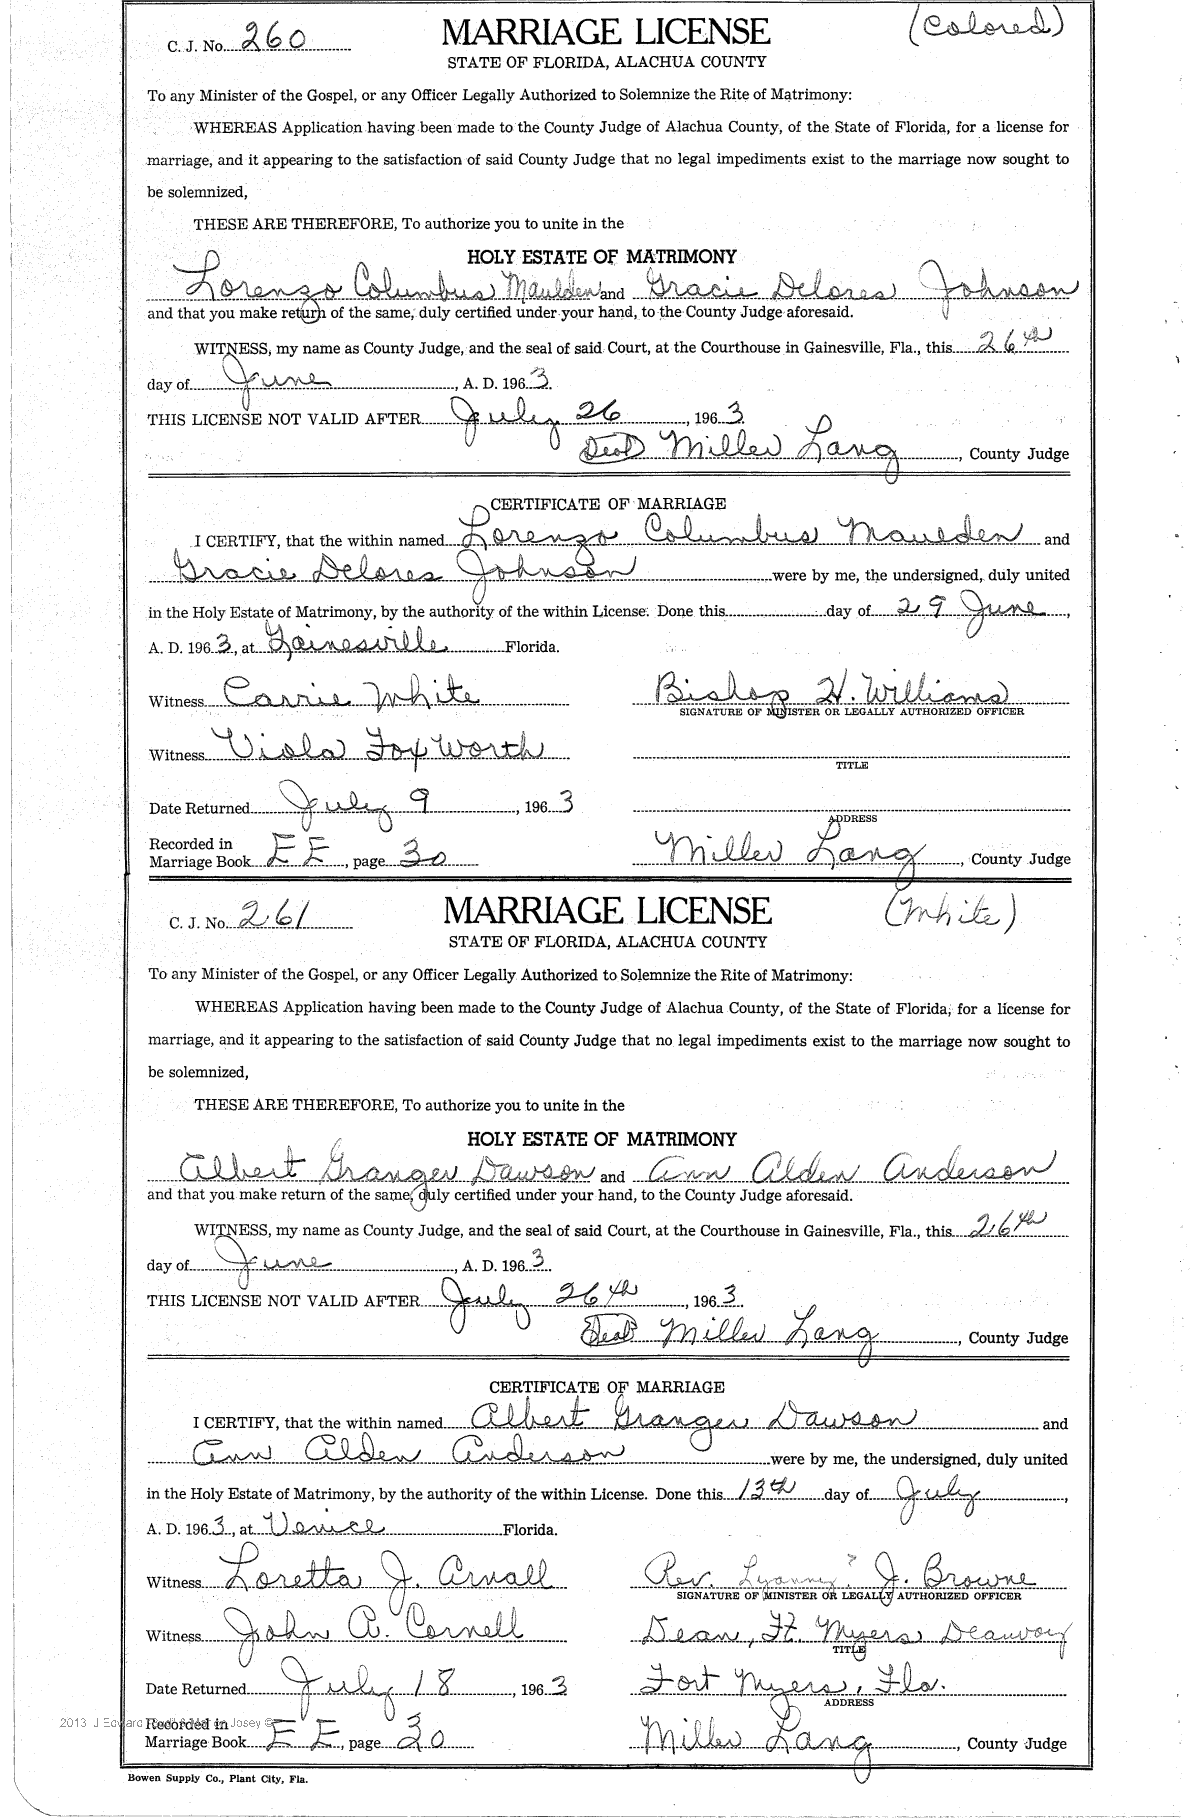 C. J. No. 260 MARRIAGE LICENSE (Colored)
STATE OF FLORIDA, ALACHUA COUNTY
To any Minister of the Gospel, or any Officer Legally Authorized to Solemnize the Rite of Matrimony:
WHEREAS Application having been made to the County Judge of Alachua County, of the State of Florida, for a license for
marriage, and it appearing to the satisfaction of said County Judge that no legal impediments exist to the marriage now sought to
be solemnized,
THESE ARE THEREFORE, To authorize you to unite in the
HOLY ESTATE OF MATRIMONY
Lorenzo Columbus Maulden and Gracie Delores Johnson
and that you make return of the same, duly certified under your hand, to the County Judge aforesaid.
WITNESS, my name as County Judge, and the seal of said Court, at the Courthouse in Gainesville, Fla., this 26th
day of June, A. D. 1963.
THIS LICENSE NOT VALID AFTER July 26, 1963
(Seal) Miller Lang, County Judge
CERTIFICATE OF MARRIAGE
I CERTIFY, that the within named Lorenzo Columbus Maulden and
Gracie Delores Johnson were by me, the undersigned, duly united
in the Holy Estate of Matrimony, by the authority of the within License. Done this day of 29 June,
A. D. 1963, at Gainesville Florida.
Witness Carrie White Bishop H. Williams
SIGNATURE OF MINISTER OR LEGALLY AUTHORIZED OFFICER
Witness Viola Fox Worth
TITLE
Date Returned July 9, 1963
ADDRESS
Recorded in
Marriage Book EE, page 30 Miller Lang, County Judge
C. J. No. 261 MARRIAGE LICENSE (White)
STATE OF FLORIDA, ALACHUA COUNTY
To any Minister of the Gospel, or any Officer Legally Authorized to Solemnize the Rite of Matrimony:
WHEREAS Application having been made to the County Judge of Alachua County, of the State of Florida, for a license for
marriage, and it appearing to the satisfaction of said County Judge that no legal impediments exist to the marriage now sought to
be solemnized,
THESE ARE THEREFORE, To authorize you to unite in the
HOLY ESTATE OF MATRIMONY
Albert Granger Dawson and Ann Alden Anderson
and that you make return of the same, duly certified under your hand, to the County Judge aforesaid.
WITNESS, my name as County Judge, and the seal of said Court, at the Courthouse in Gainesville, Fla., this 26th
day of June, A. D. 1963.
THIS LICENSE NOT VALID AFTER July 26th, 1963.
(Seal) Miller Lang, County Judge
CERTIFICATE OF MARRIAGE
I CERTIFY, that the within named Albert Granger Dawson and
Ann Alden Anderson were by me, the undersigned, duly united
in the Holy Estate of Matrimony, by the authority of the within License. Done this 13th day of July,
A. D. 1963, at Venice Florida.
Witness Loretta J. Arnall Rev. ? J. Browne
SIGNATURE OF MINISTER OR LEGALLY AUTHORIZED OFFICER
Witness John A. Cornell Dean, Ft. Myers
TITLE
Date Returned July 18, 1963 Fort Myers, Fla.
ADDRESS
Recorded in
Marriage Book EE, page 30 Miller Lang, County Judge
Bowen Supply Co., Plant City, Fla.